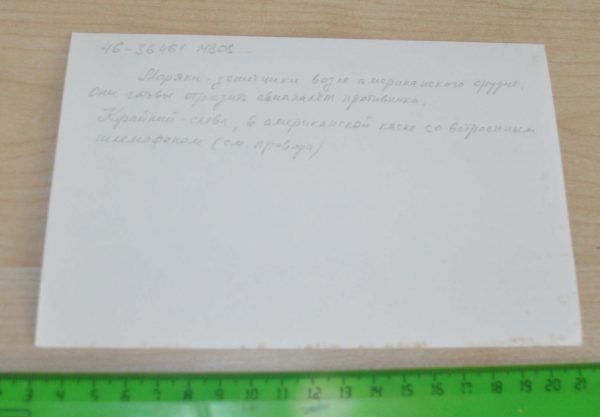 46-36461 МВОВ
Моряки-зенитчики возле американского орудия.
Они готовы отразить авианалет противника.
Крайний-слева, в американской каске со встроенным
шлемофоном (см. провода)
3 4 5 6 7 8 9 10 11 12 13 14 15 16 17 18 19 20 21